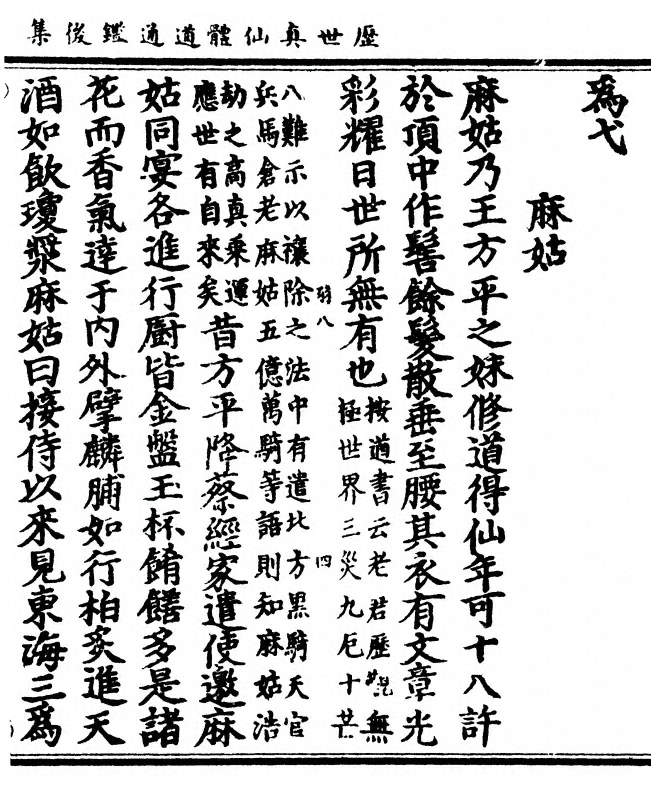 歷世真仙體道通鑑後集
為弋
麻姑
麻姑乃王方平之妹修道得仙年可十八許
於頂中作髻餘髮散垂至腰其衣有文章光
彩耀日世所無有也
按道書云老君歷觀無
極世界三災九厄十苦
弱八
四
八難示以禳除之法中有遣北方黑騎天官
兵馬倉老麻姑五億萬騎等語則知麻姑浩
劫之高真乘運
應世有自來矣
昔方平降蔡經家遣使邀麻
姑同宴各進行廚皆金盤玉杯餚饍多是諸
花而香氣達于內外擘麟脯如行柏炙進天
酒如飲瓊漿麻姑曰接侍以來見東海三為